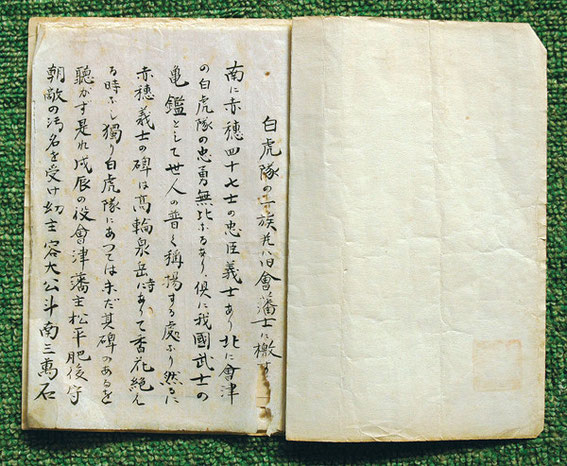 白虎隊の子族並ニ旧會藩士ニ檄す
南に赤穂四十七士の忠臣義士あり北に會津
の白虎隊の忠勇無比なるあり倶に我國武士の
亀鑑として世人の普く稱揚する處なり然るに
赤穂義士の碑は高輪泉岳寺にありて香花絶え
る時なし獨り白虎隊にあつては未だ其碑のあるを
聴かす是れ戊辰の役會津藩主松平肥後守
朝敵の汚名を受け幼主容大公斗南三萬石